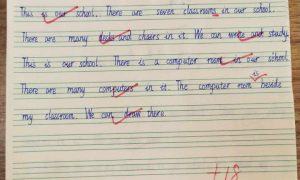 This is our school. There are seven classrooms in our school.
There are many desks and chairs in it. We can write and study.
This is our school. There is a computer room in our school.
There are many computers in it. The computer room is beside
my classroom. We can draw there.
+18